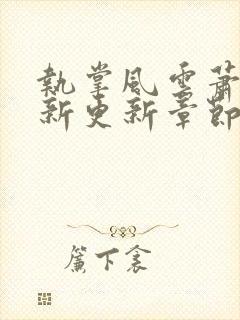 執掌風雲蕭
新更新章節
簾下衾